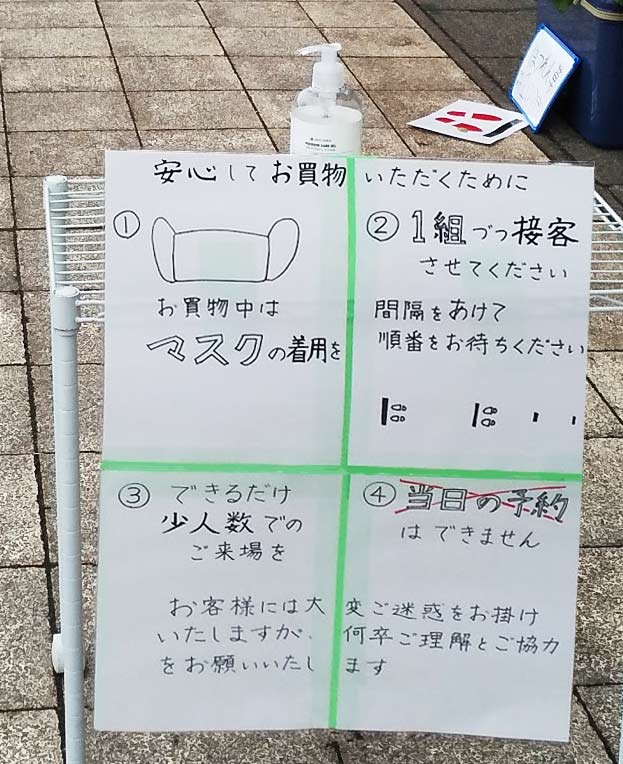 安心してお買物いただくために
① 
お買物中は
マスクの着用を
② 1組づつ接客
させてください
間隔をあけて
順番をお待ちください
③ できるだけ
少人数での
ご来場を
④ 当日の予約
はできません
お客様には大変ご迷惑をお掛け
いたしますが、何卒ご理解とご協力
をお願いいたします